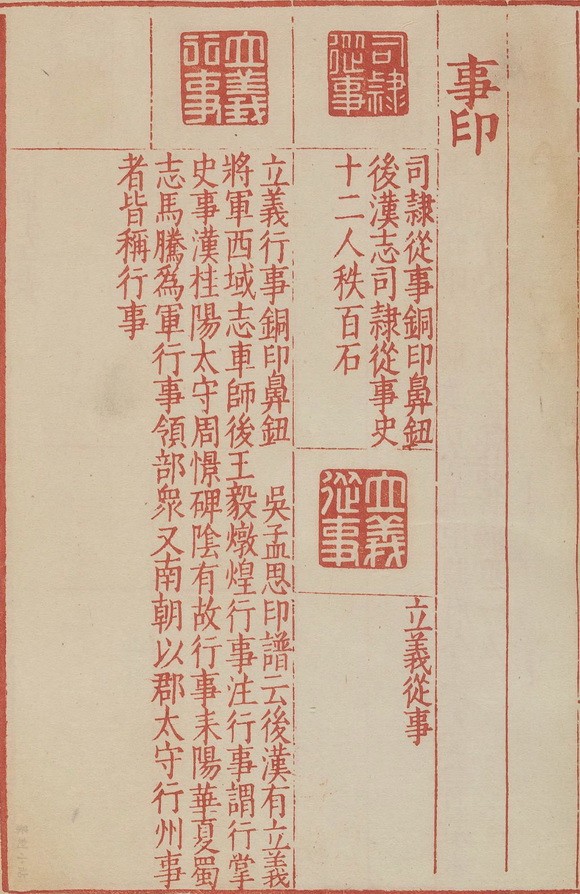 事印
司隸
從事
司隸從事銅印鼻鈕
後漢志司隸從事史
十二人秩百石
立義
從事
立義從事
立義
行事
立義行事銅印鼻鈕　吳孟思印譜云後漢有立義
將軍西域志車師後王毅燉煌行事注行事謂行掌
史事漢桂陽太守周憬碑陰有故行事耒陽華夏蜀
志馬騰爲軍行事領部眾又南朝以郡太守行州事
者皆稱行事